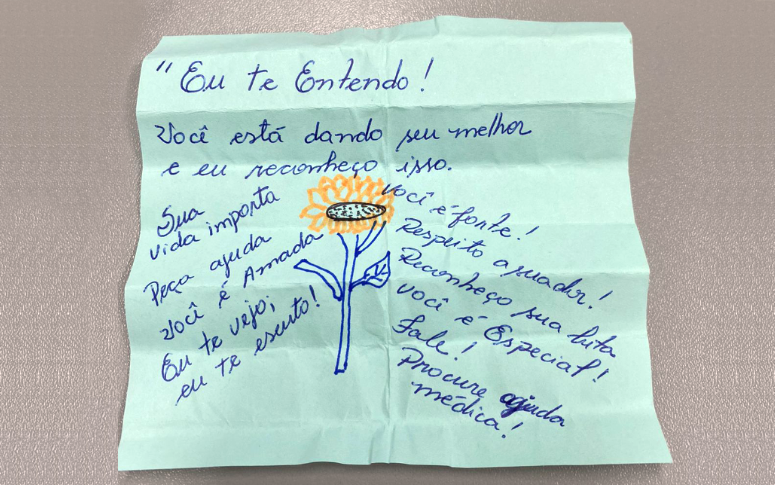 "Eu te Entendo!
Você está dando seu melhor
e eu reconheço isso.
Sua
vida importa
Peça ajuda
Você é Amada
Eu te vejo;
eu te escuto!
Você é forte!
Respeito a sua dor!
Reconheço sua luta
Você é Especial!
Fale!
Procure ajuda
médica!